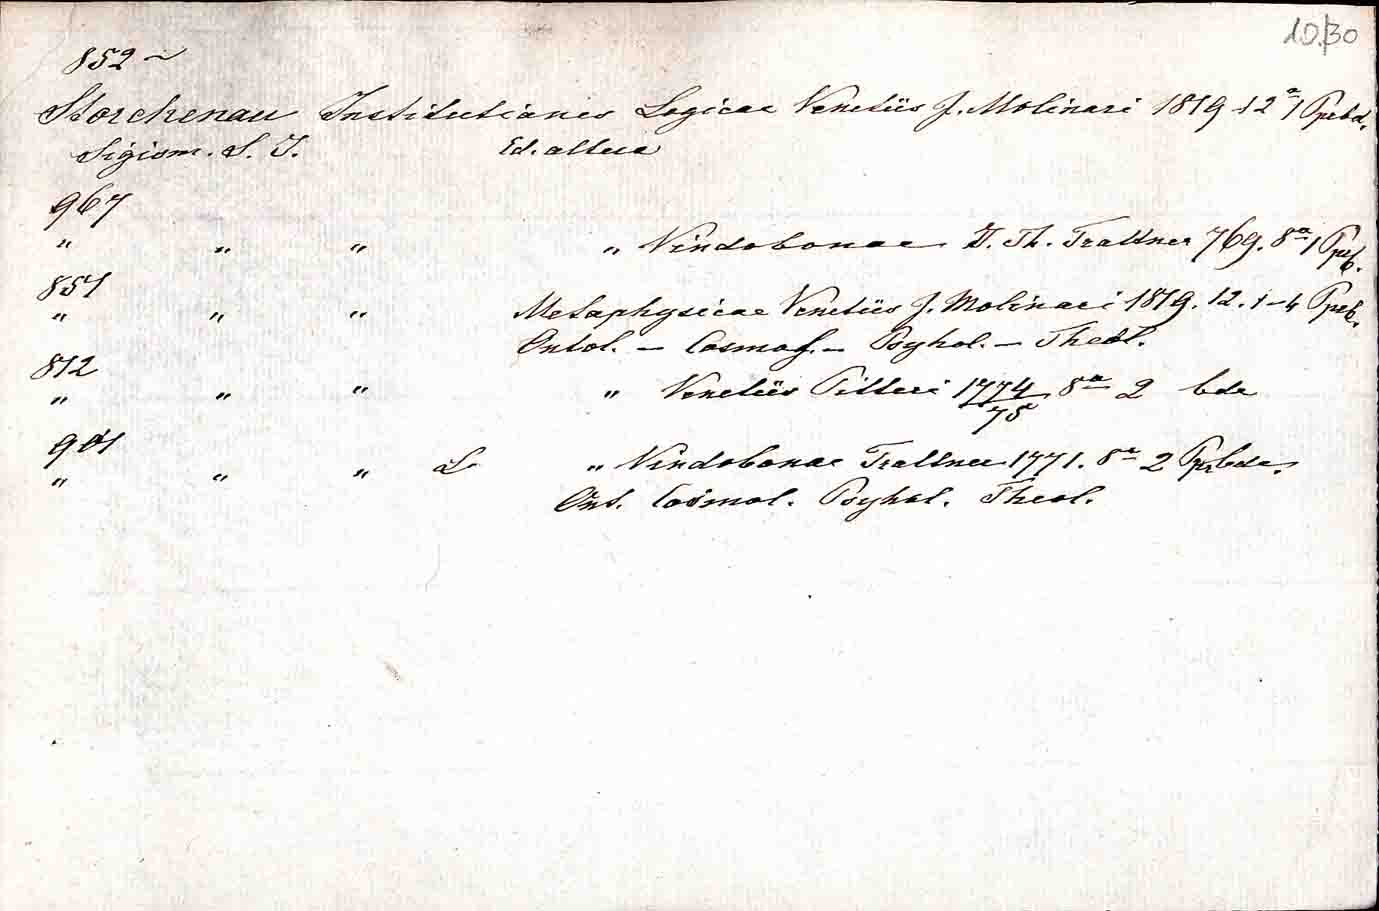 10.30
852 ~
Storchenau Institutiones Logicae Venetiis J. Molinari 1819 12ª 1 Pprbd.
Sigism. S. J. Ed. altera
967
" " " " Vindobonae J. Th. Trattner 769. 8ª 1 Pprb.
851
" " " Metaphysicae Venetiis J. Molinari 1819. 12. 1-4 Pprb.
Ontol. - Cosmol. - Psyhol. - Theol.
812
" " " " Venetiis Pitteri 1774/75 8ª 2 bde
901
" " " L " Vindobonae Trattner 1771. 8ª 2 Pprbde.
Ont. Cosmol. Psyhol. Theol.